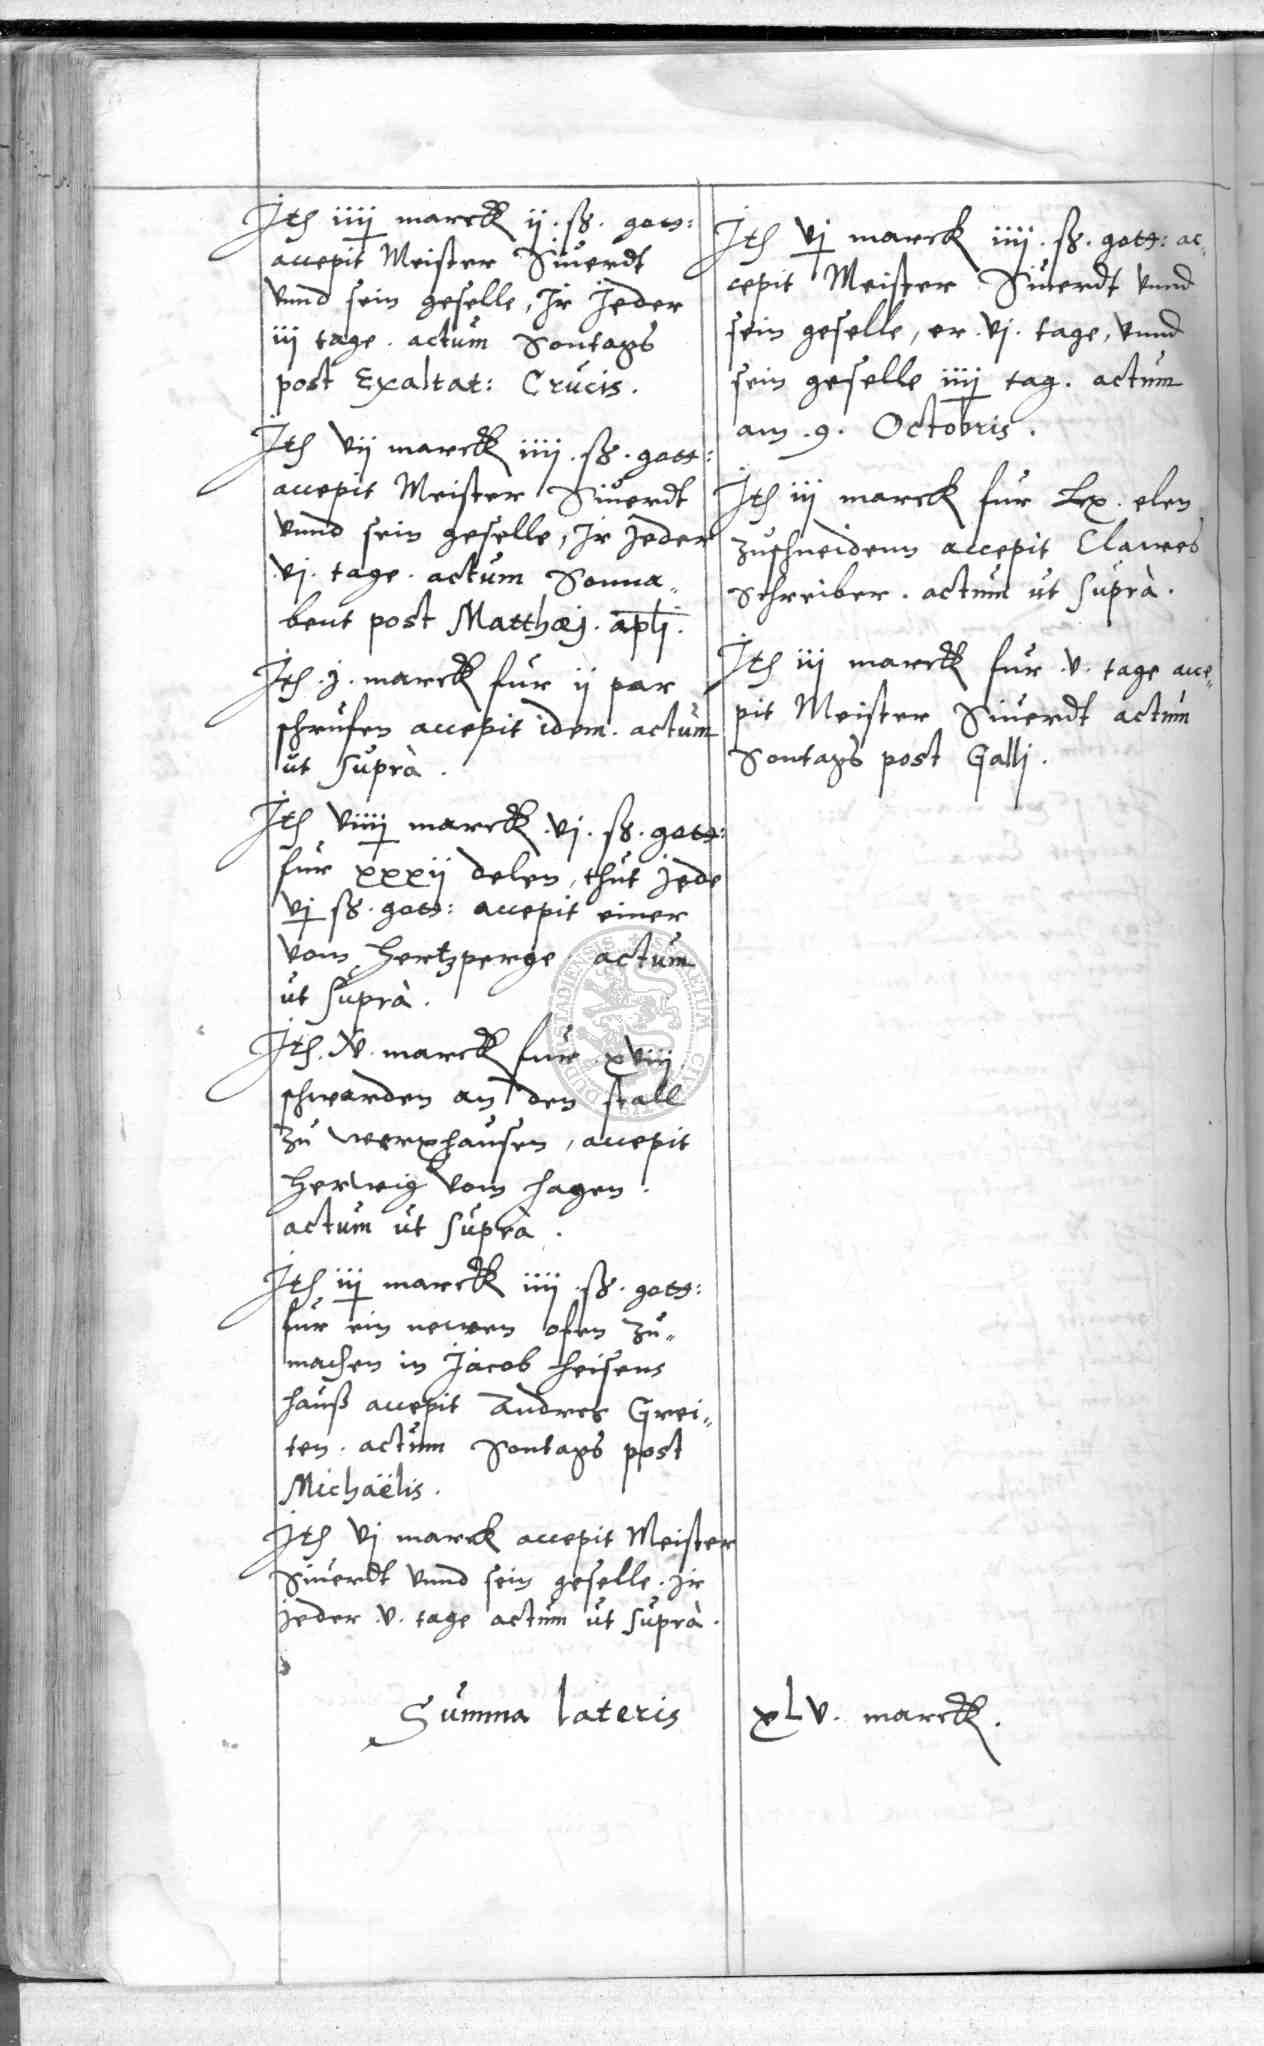 Jtem iiij marck ij. ß. gott:
accepit Meister Siuerdt
vnnd sein geselle, Jr Jeder
iij tage. actum Sontags
post Exaltat: Crucis.
Jtem vij marck iiij. ß. gott:
accepit Meister Siuerdt
vnnd sein geselle, Jr Jeder
.vj. tage. actum Sonna„
bent post Matthæj. aplj.
Jtem .j. marck fur ij par
schrufen accepit idem. actum
ut suprà.
Jtem viiij marck .vj. ß. gott:
fur xxxij delen, thut Jede
vj ß. gott: accepit einer
vom Hertzperge actum
ut suprà.
Jtem .iv. marck fur .xviij
schwarden an den stall
zu werxhausen, accepit
Herwig vom Hagen.
actum ut suprà.
Jtem iij marck iiij. ß. gott:
fur ein newen ofen zu„
machen in Jacob Heisens
hauß accepit Andres Grei„
ten. actum Sontags post
Michaëlis.
Jtem vj marck accepit Meister
Siuerdt vnnd sein geselle. Jr
Jeder .v. tage actum ut suprà.
Jtem vj marck iiij. ß. gott: ac„
cepit Meister Siuerdt vnnd
sein geselle, er .vj. tage, vnnd
sein geselle iiij tag. actum
am .9. Octobris.
Jtem iij marck fur Lx. elen
zuschneidenn accepit Clawes
Schreiber. actum ut suprà.
Jtem iij marck fur .v. tage acce„
pit Meister Siuerdt actum
Sontags post Gallj.
Summa lateris xLv. marck.